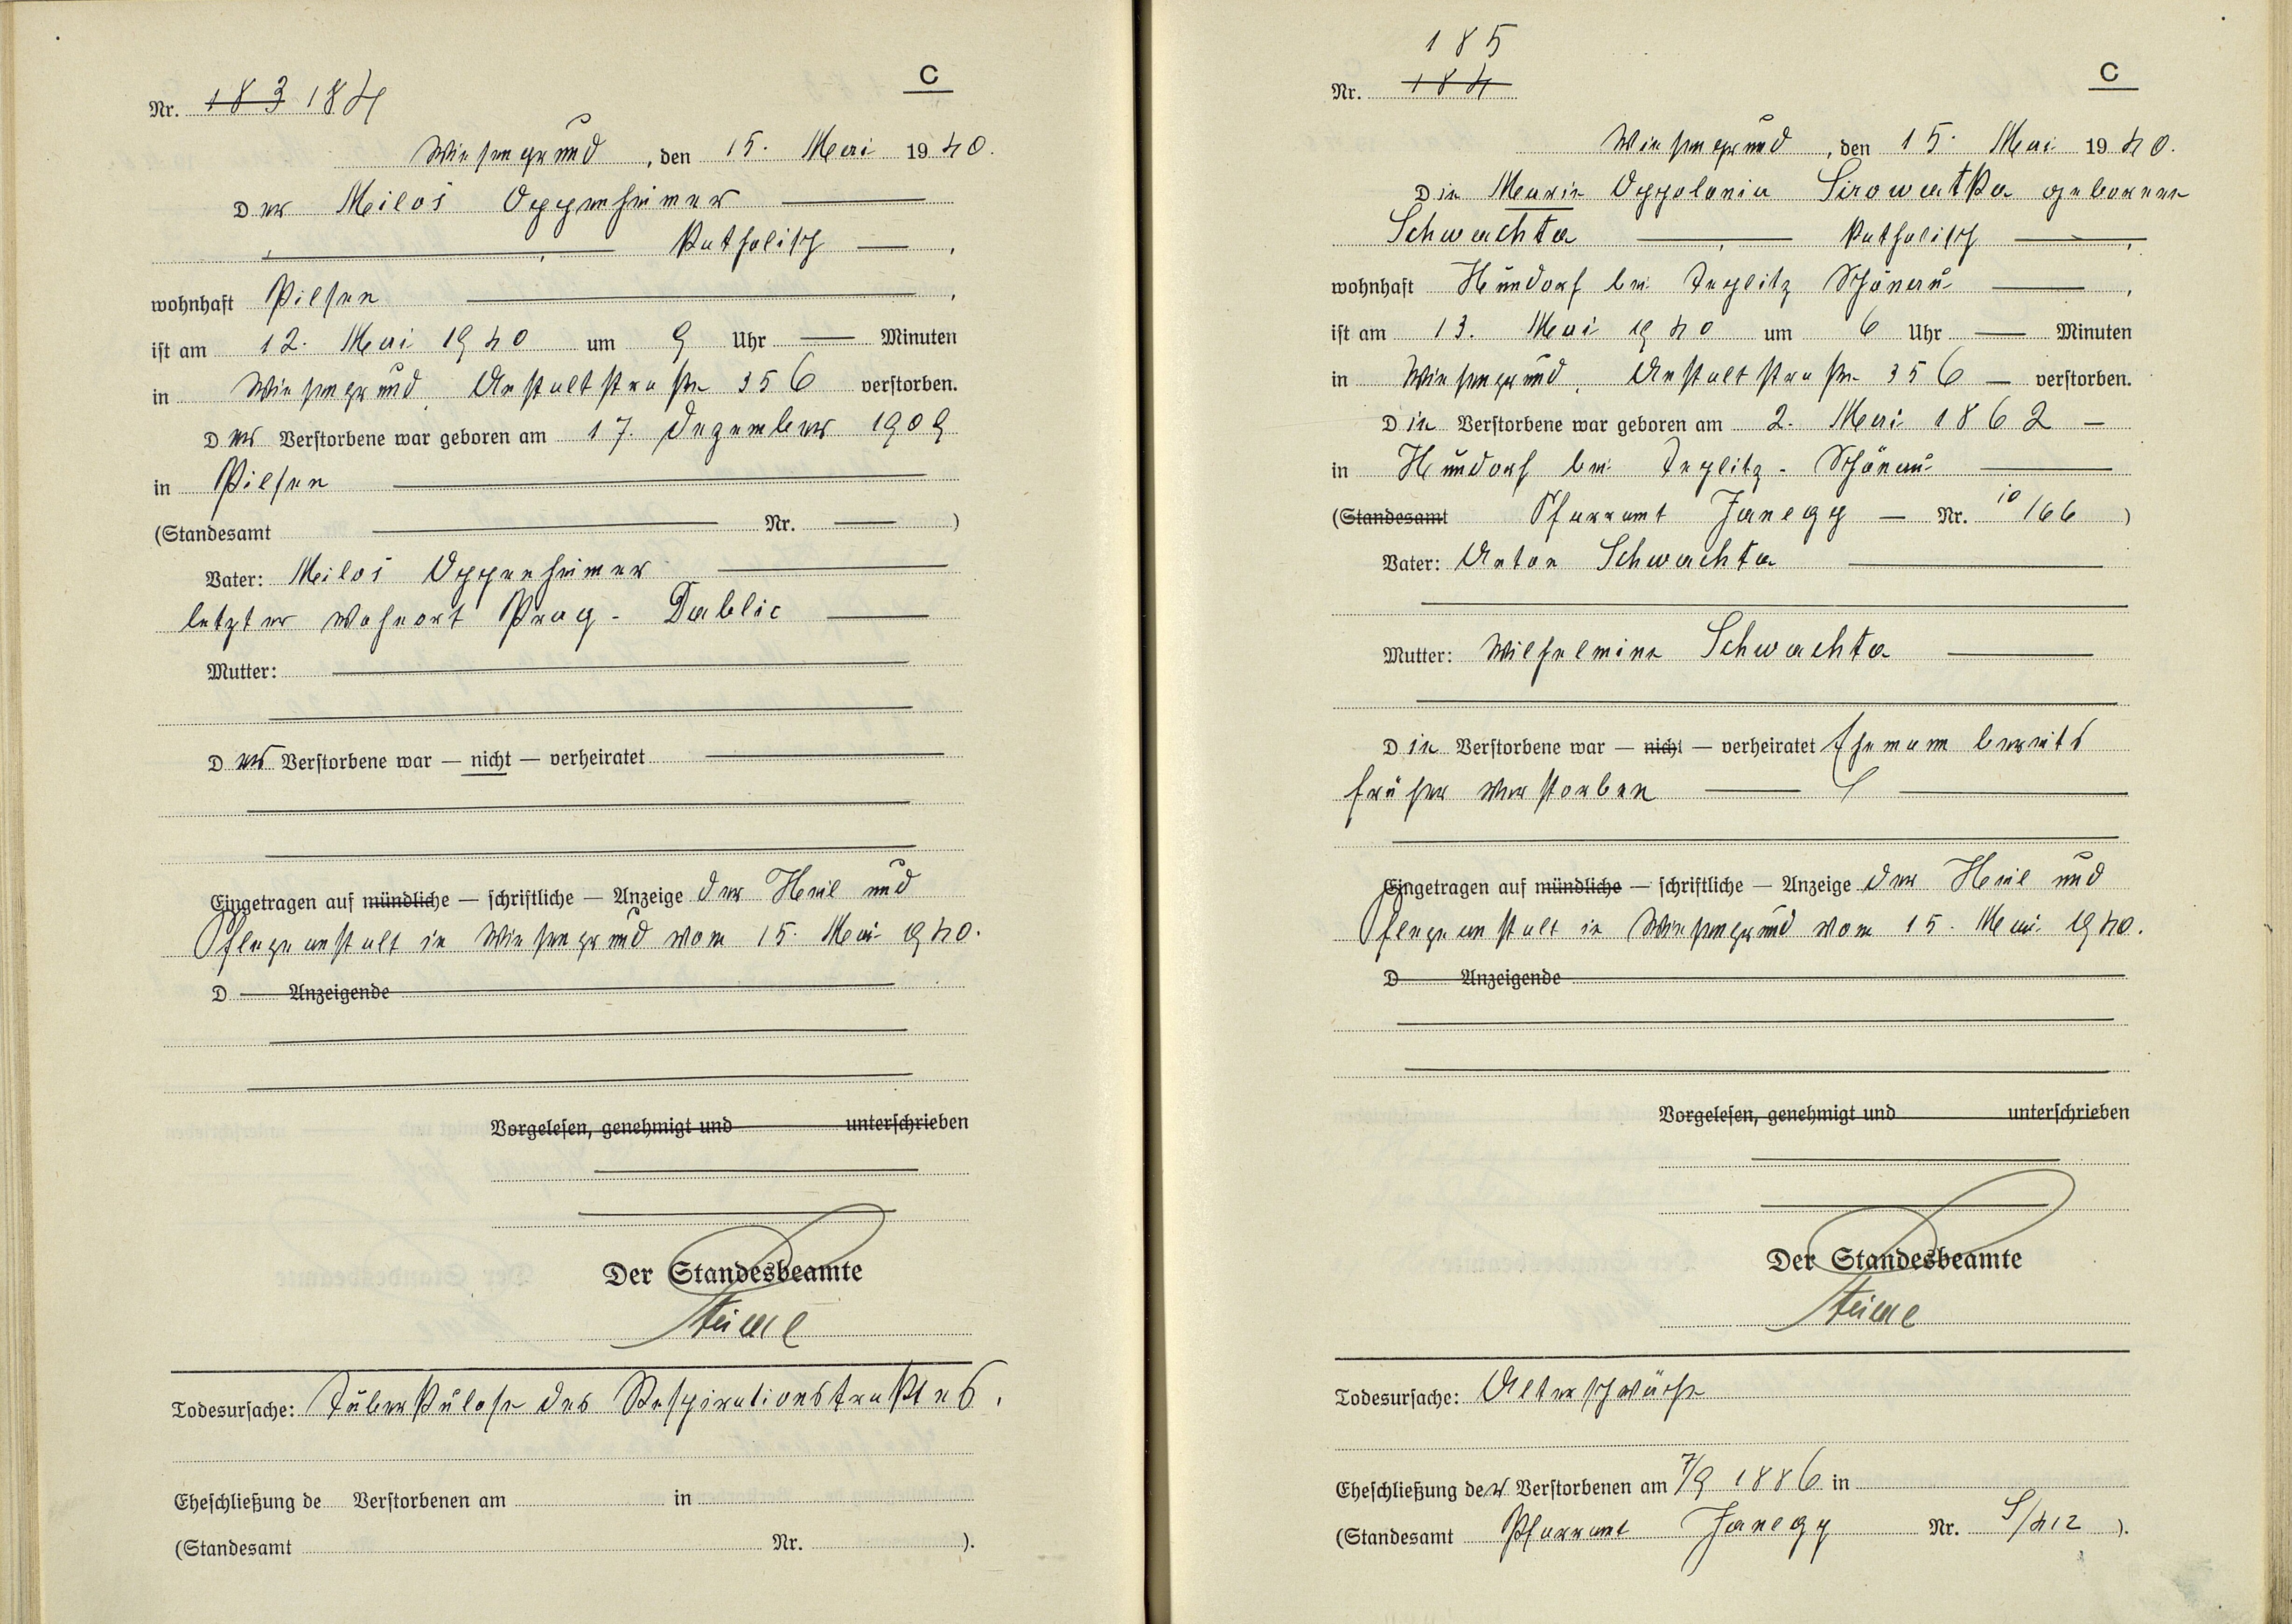 C
Nr. 183 184
Wiesengrund, den 15. Mai 1940.
Der Milos Oppenheimer
katholisch,
wohnhaft Pilsen,
ist am 12. Mai 1940 um 9 Uhr Minuten
in Wiesengrund, Anstaltstraße 356 verstorben.
Der Verstorbene war geboren am 17. Dezember 1909
in Pilsen
(Standesamt Nr. )
Vater: Milos Oppenheimer
letzter Wohnort Prag - Dablic
Mutter:
Der Verstorbene war — nicht — verheiratet
Eingetragen auf mündliche — schriftliche — Anzeige der Heil und
Pflegeanstalt in Wiesengrund vom 15. Mai 1940.
D Anzeigende
Vorgelesen, genehmigt und unterschrieben
Der Standesbeamte
Todesursache: Tuberkulose des Respirationstraktes.
Eheschließung de Verstorbenen am in
(Standesamt Nr. ).
185
C
Nr. 184
Wiesengrund, den 15. Mai 1940.
Die Marie Appolonia Sirowatka geborene
Schwachta, katholisch,
wohnhaft Hundorf bei Teplitz Schönau,
ist am 13. Mai 1940 um 6 Uhr Minuten
in Wiesengrund, Anstaltstraße 356 — verstorben.
Die Verstorbene war geboren am 2. Mai 1862 —
in Hundorf bei Teplitz - Schönau
(Standesamt Pfarramt Janegg — Nr. 10/166 )
Vater: Anton Schwachta
Mutter: Wilhelmine Schwachta
Die Verstorbene war — nicht — verheiratet Ehemann bereits
früher verstorben
Eingetragen auf mündliche — schriftliche — Anzeige der Heil und
Pflegeanstalt in Wiesengrund vom 15. Mai 1940.
D Anzeigende
Vorgelesen, genehmigt und unterschrieben
Der Standesbeamte
Todesursache: Altersschwäche
Eheschließung der Verstorbenen am 7/9 1886 in
(Standesamt Pfarramt Janegg Nr. ).